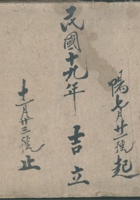 陽七月廿一號起
民國十九年 吉立
十一月廿三號止